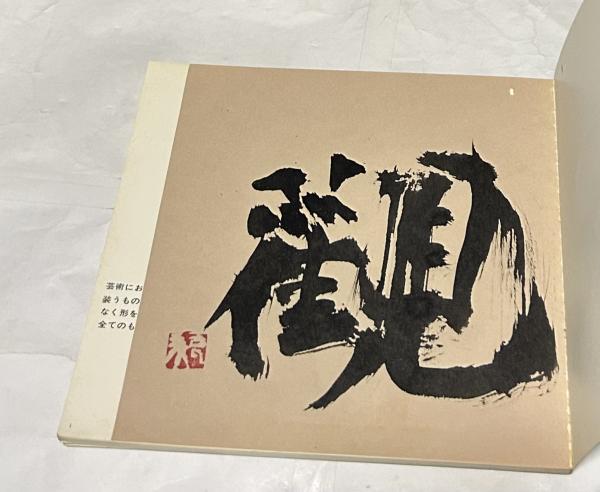 觀
芸術にお
装うもの
なく形を
全てのも